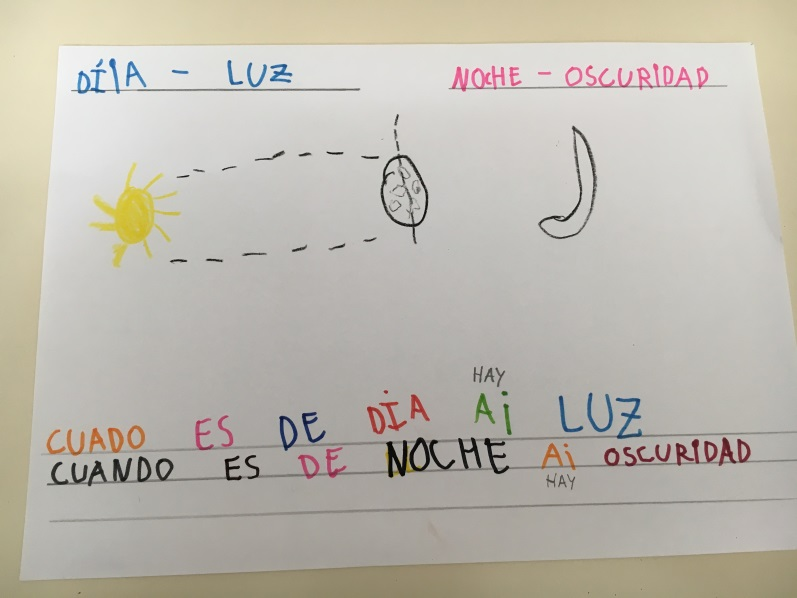 DÍIA - LUZ
NOCHE - OSCURIDAD
HAY
CUADO ES DE DÍA Ai LUZ
CUANDO ES DE NOCHE Ai OSCURIDAD
HAY